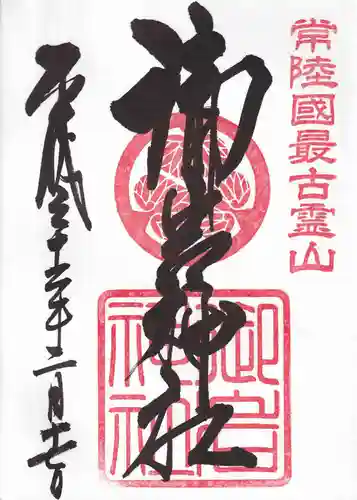 常陸國最古霊山
御岩神社
平成年二月日
御岩神社